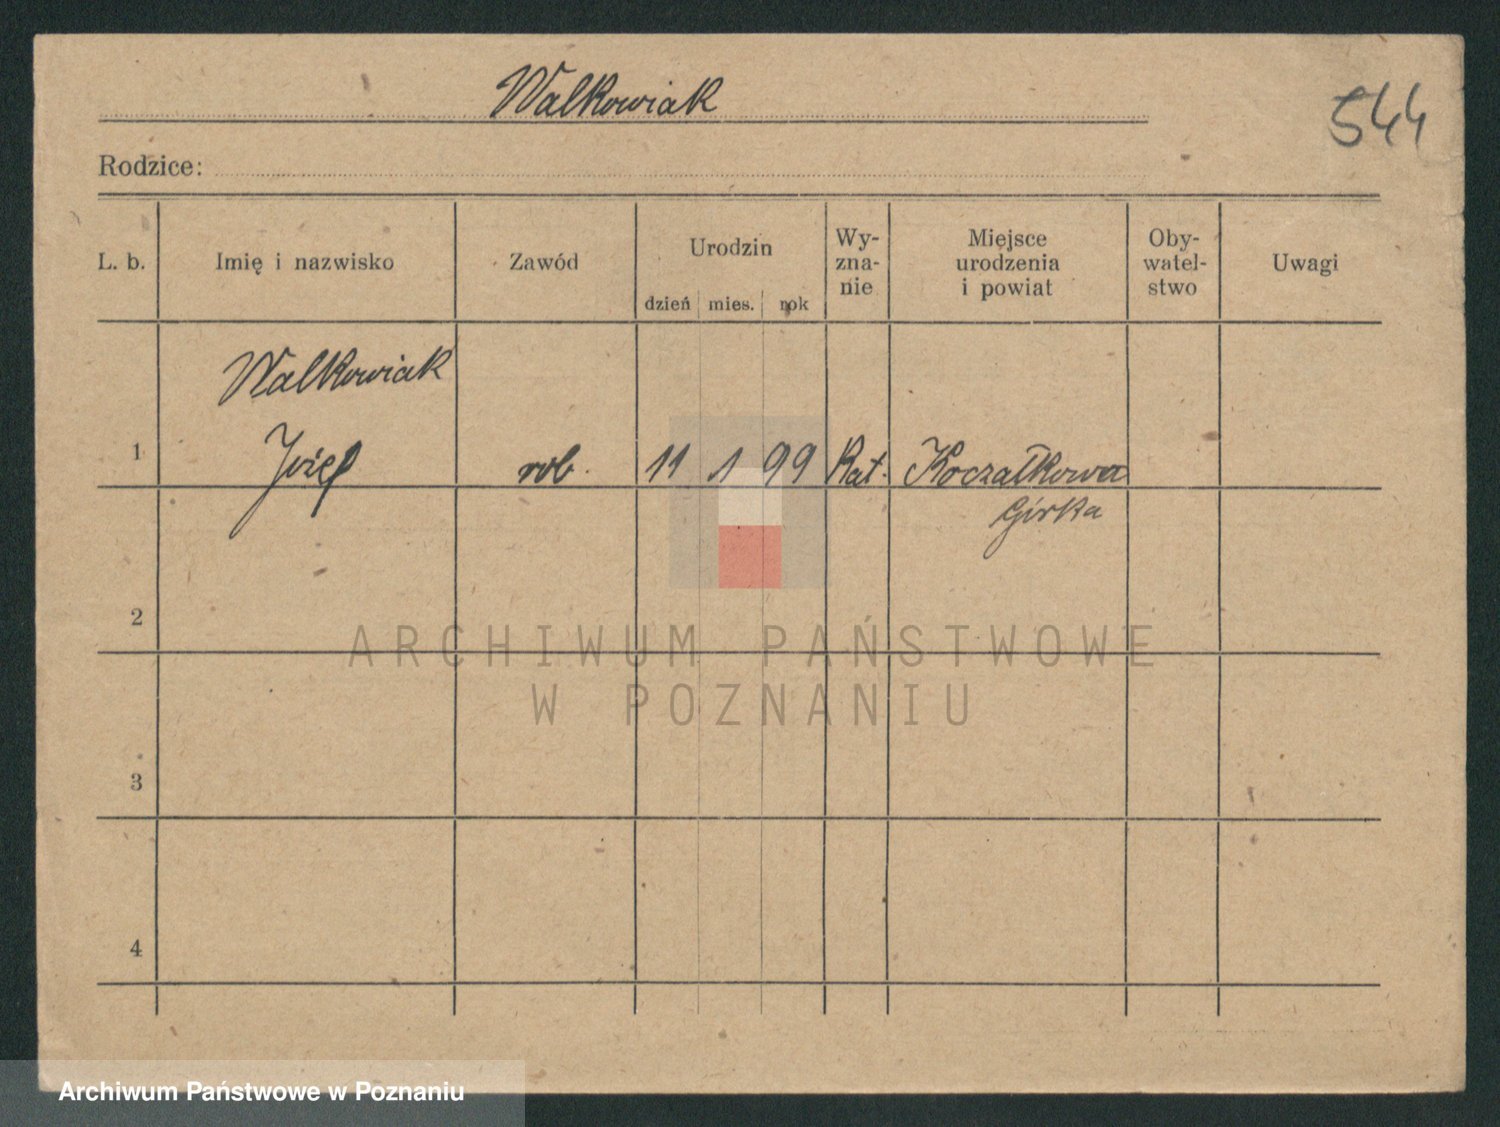 Walkowiak
544
Rodzice:
L. b. Imię i nazwisko Zawód Urodzin dzień mies. rok Wy-zna-nie Miejsce urodzenia i powiat Oby-watel-stwo Uwagi
Walkowiak
1 Józef rob. 11 1 99 Kat. Koczałkowa
Górka
2
3
4
ARCHIWUM PAŃSTWOWE
W POZNANIU
Archiwum Państwowe w Poznaniu